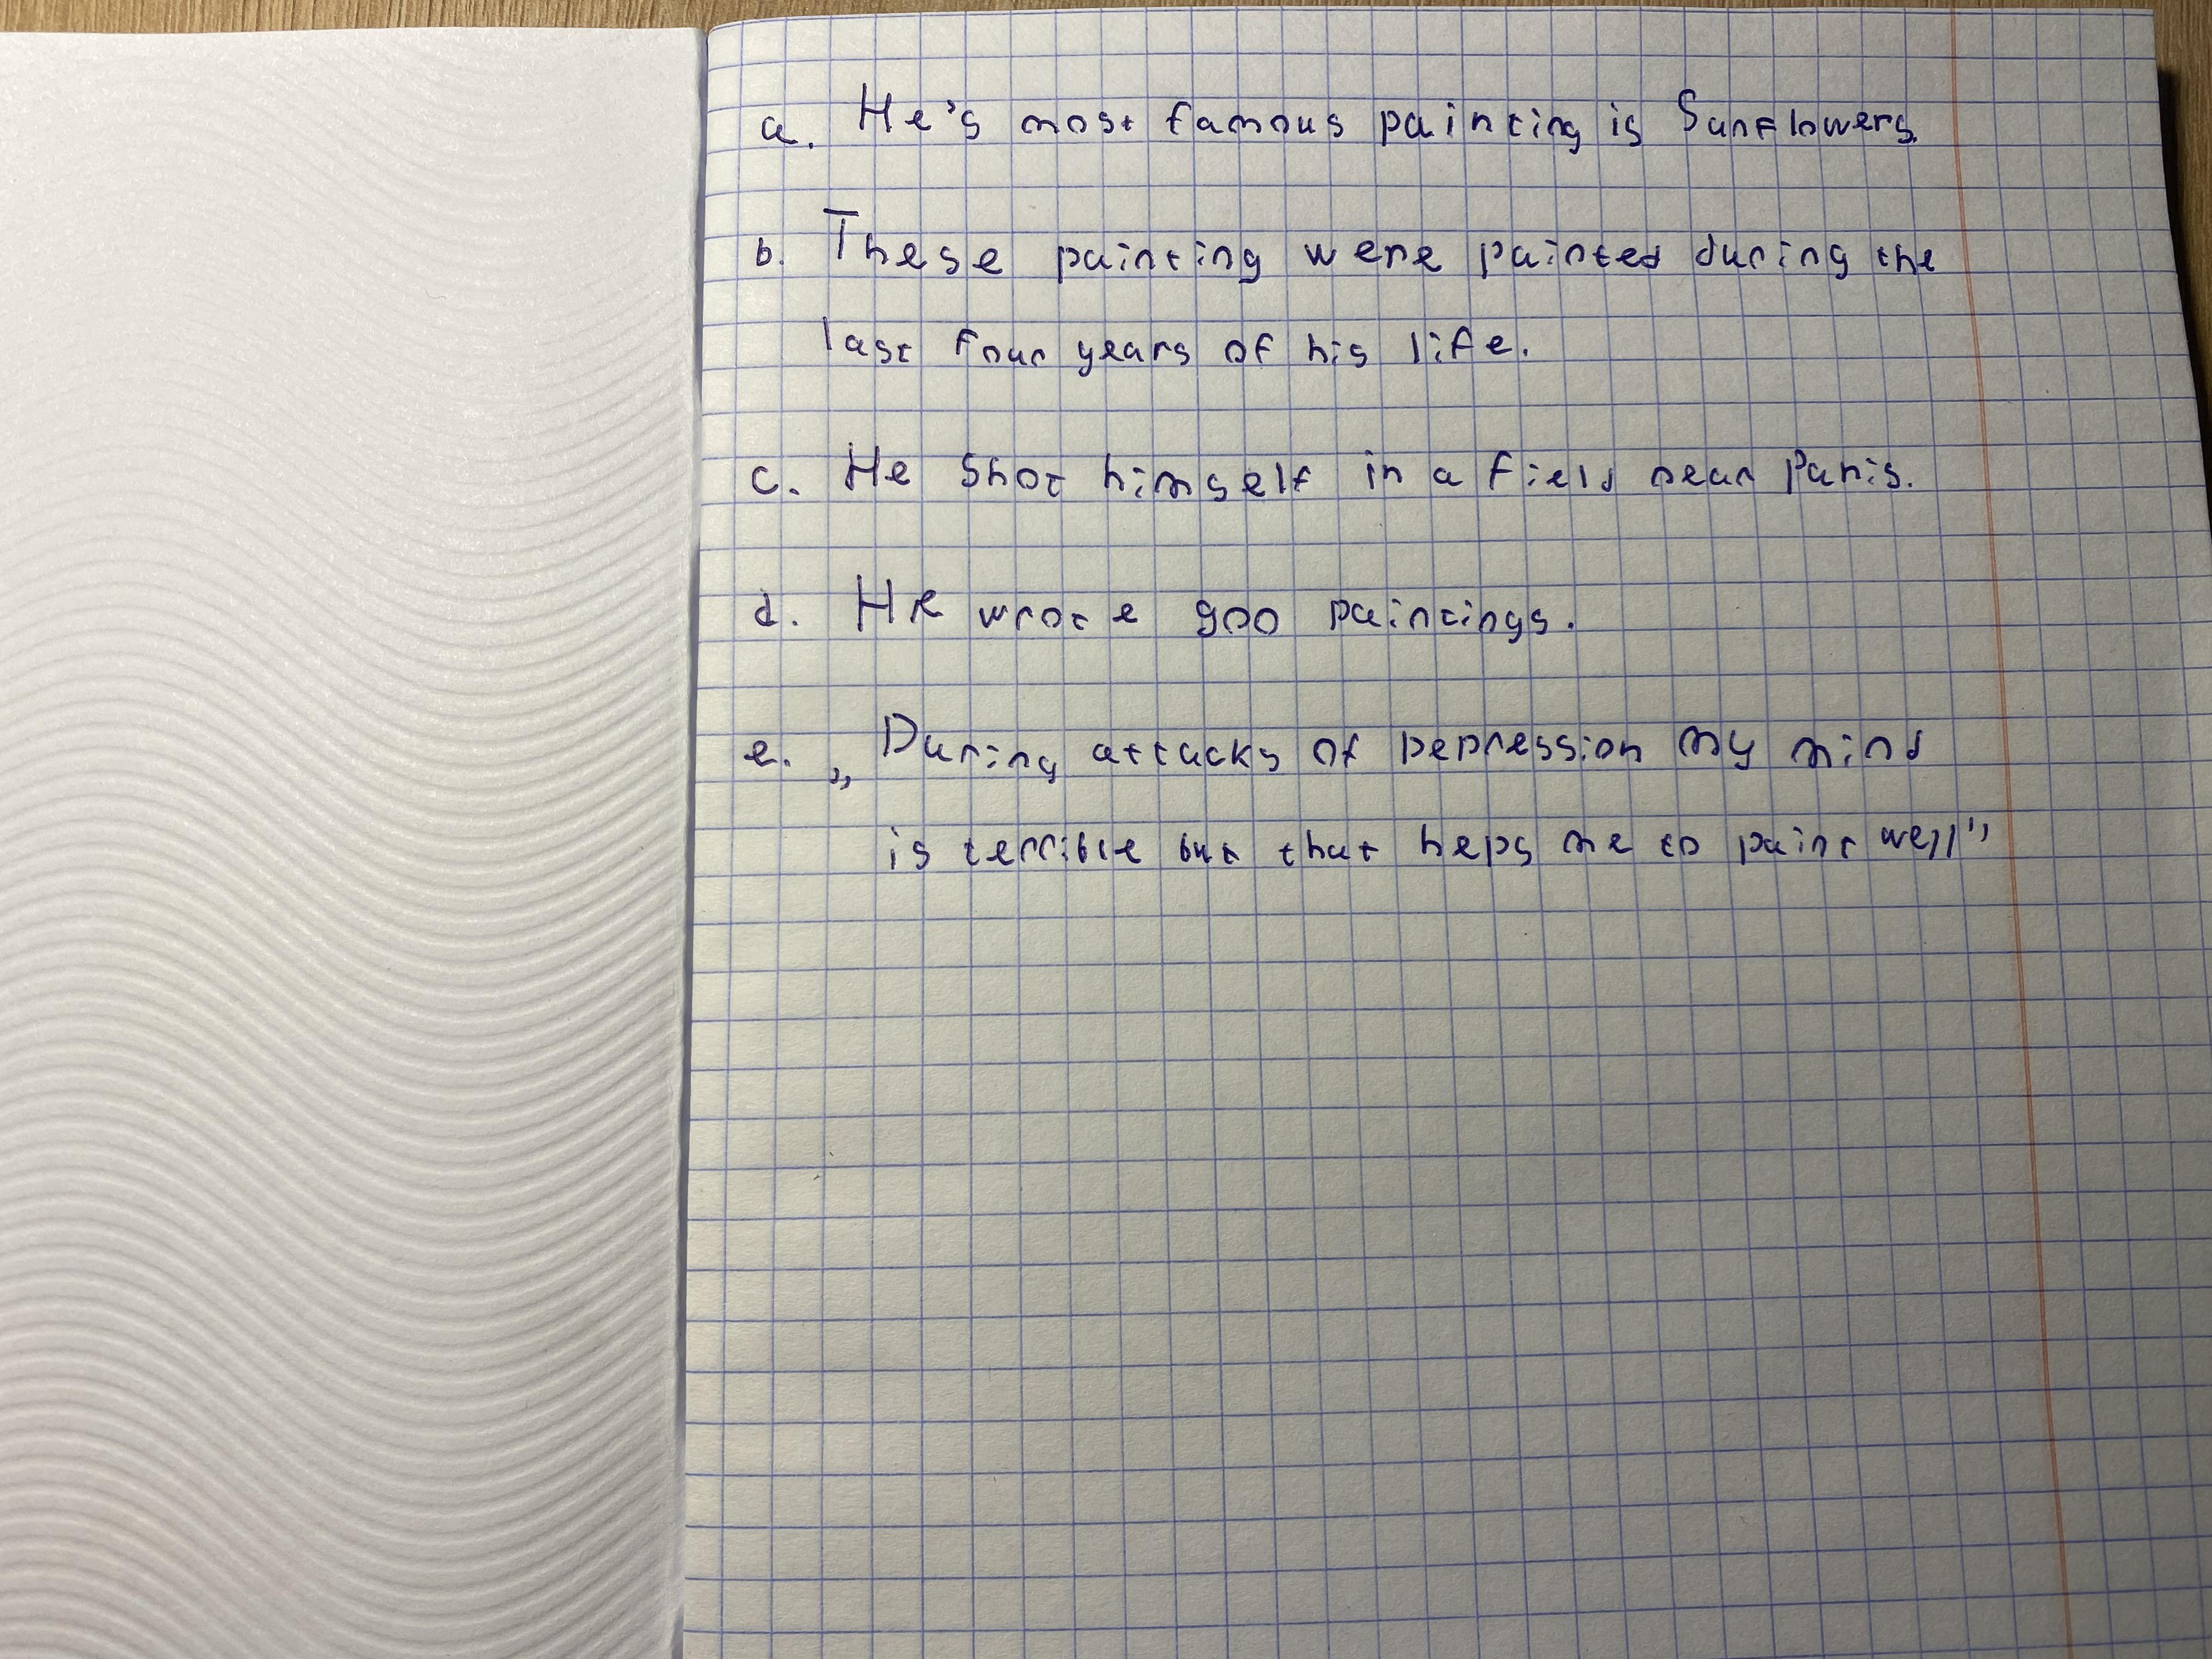 a. He's most famous painting is Sunflowers.
b. These painting were painted during the
last four years of his life.
c. He shot himself in a field near Paris.
d. He wrote 900 paintings.
e. „During attacks of Depression my mind
is terrible but that heps me to paint well"